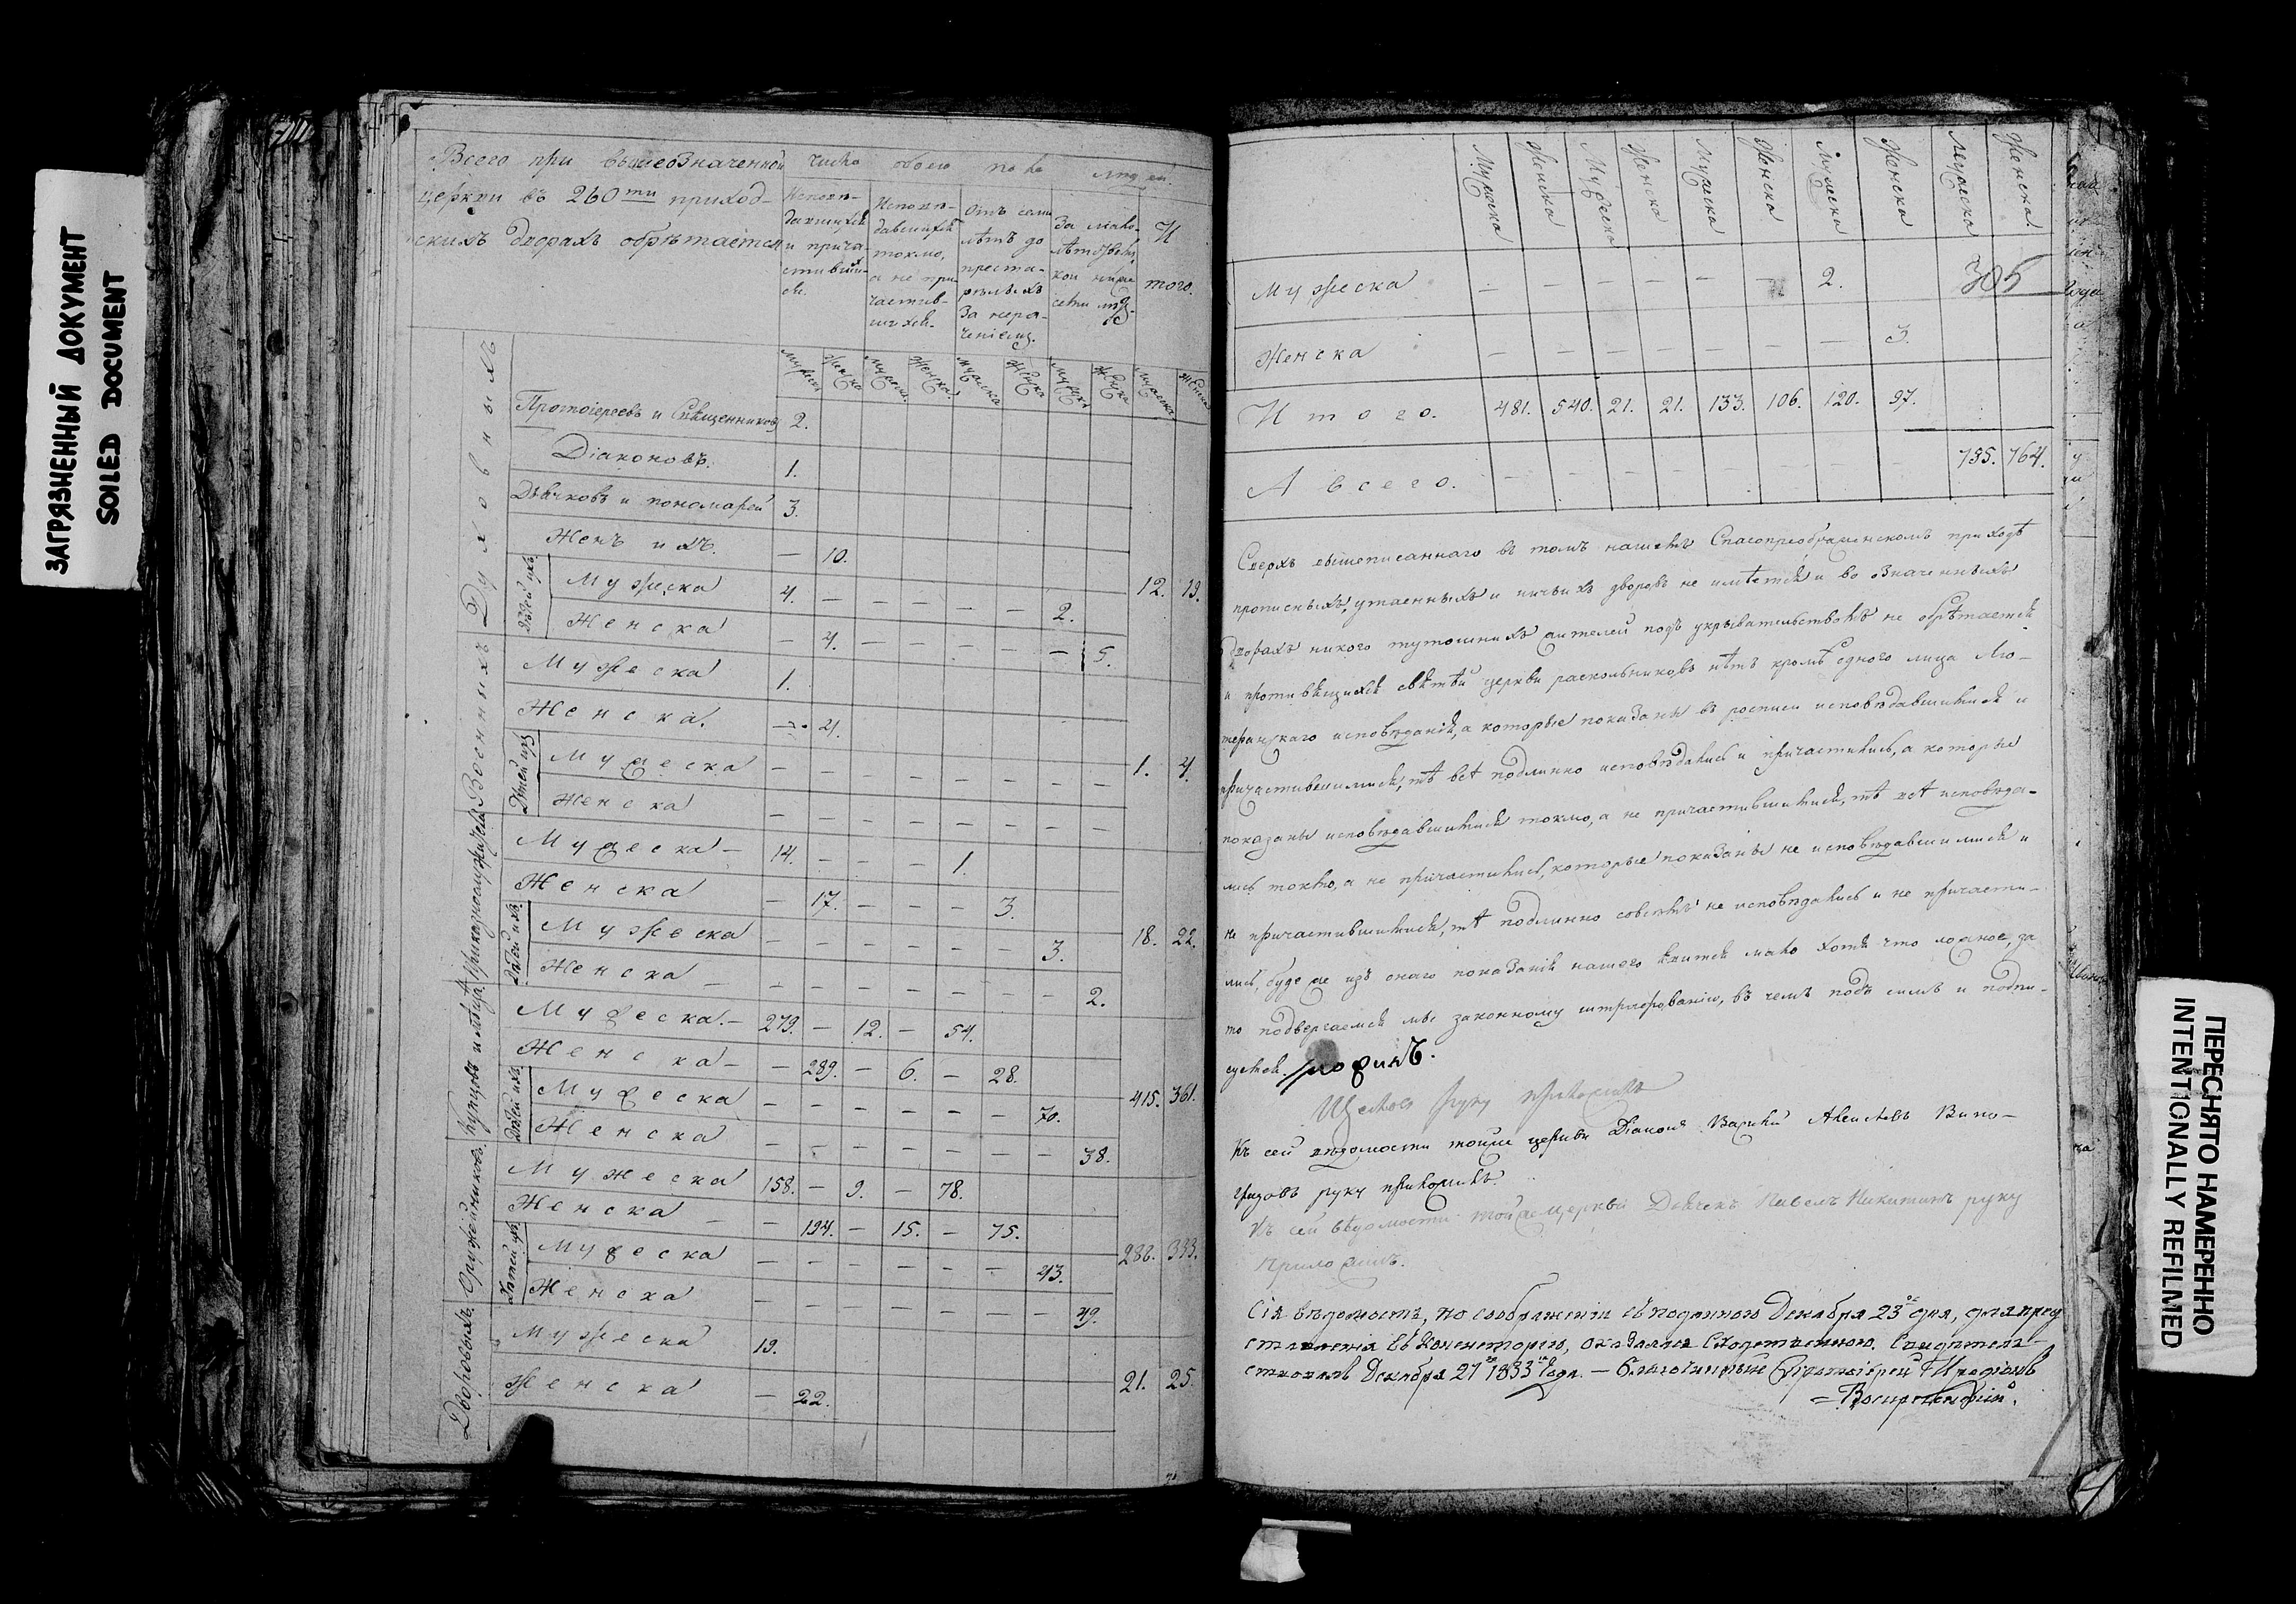 ЗАГРЯЗНЕННЫЙ ДОКУМЕНТ
SOILED DOCUMENT
Всего при вышеозначенной числа обоего пола людей.
церкви въ 260ти приход-
скихъ дворахъ обрѣтается
Исповѣ-
давшихся
и прича-
стивших-
ся.
Исповѣ-
давшихся
токмо,
а не при-
частив-
шихся.
Отъ семи
лѣтъ до
преста-
рѣлыхъ
За нера-
ченіемъ.
За мало-
лѣтствомъ
И
того.
Мужеска Женска Мужеска Женска Мужеска Женска Мужеска Женска Мужеска Женска
Духовныхъ
Протоіереевъ и Священниковъ 2.
Діаконовъ. 1.
Дьячковъ и пономарей 3.
Женъ ихъ. — 10.
Дѣтей ихъ
Мужеска 4. — — — — — 2.
12. 19.
Женска — 4. — — — — 5.
Военныхъ
Мужеска 1.
Женска. — 4.
Дѣтей ихъ
Мужеска — — — — — — — —
1. 4.
Женска — — — — — — — —
Мужеска — 14. — — — 1.
Женска — 17. — — — 3.
Дѣтей ихъ
Мужеска — — — — — — 3.
18. 22.
Женска — — — — — — — 2.
Купцовъ и
Мужеска. — 279. — 12. — 54.
Женска — — 289. — 6. — 28.
Дѣтей ихъ
Мужеска — — — — — — 70.
415. 361.
Женска — — — — — — — 38.
Оружейниковъ.
Мужеска 158. — 9. — 78.
Женска — 194. — 15. — 75.
Дѣтей ихъ
Мужеска — — — — — — 43.
288. 333.
Женска — — — — — — — 49.
Дворовыхъ.
Мужеска 19.
Женска — 22.
21. 25.
Мужеска Женска Мужеска Женска Мужеска Женска Мужеска Женска Мужеска Женска.
Мужеска — — — — — — 2. 305
Женска — — — — — — — 3.
Итого. 481. 540. 21. 21. 133. 106. 120. 97.
А всего. — — — — — — — — 755. 764.
Сверхъ вышеписаннаго въ томъ нашемъ Спасопреображенскомъ приходѣ
прописныхъ, утаенныхъ и ничьихъ дворовъ не имѣется и во означенныхъ
дворахъ никого тутошнихъ жителей подъ укрывательствомъ не обрѣтается
и противящихся святѣй церкви раскольниковъ нѣтъ кромѣ одного лица Лю-
теранскаго исповѣданія, а которые показаны въ росписи исповѣдавшимися и
причастившимися, тѣ всѣ подлинно исповѣдались и причастились, а которые
показаны исповѣдавшимися токмо, а не причастившимися, тѣ всѣ исповѣда-
лись токмо, а не причастились, которые показаны не исповѣдавшимися и
не причастившимися, тѣ подлинно совсѣмъ не исповѣдались и не причасти-
лись, буде же изъ онаго показанія нашего явится мало хотя что ложное, за
то подвергаемся мы законному штрафованію, въ чемъ подъ симъ и подпи-
суемся.
руку приложилъ
Къ сей вѣдомости тойже церкви Діаконъ Василій Алексѣевъ Вино-
градовъ руку приложилъ.
Къ сей вѣдомости тойже церкви Дьячекъ Павелъ Никитинъ руку
приложилъ.
Сія вѣдомость, по соображеніи съ подинною Декабря 23го дня, для пред
ставленія въ Консисторію, оказалась сходственною. Свидѣтель-
ствовалъ Декабря 27го 1833го года. — Благочинный Протоіерей
= Воскресенскій.
ПЕРЕСНЯТО НАМЕРЕННО
INTENTIONALLY REFILMED